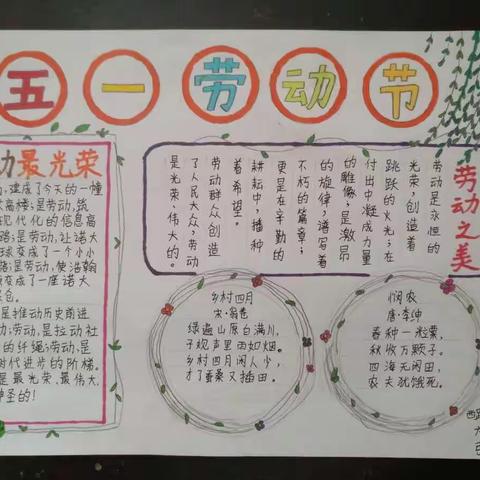 五一劳动节
动最光荣
建成了今天的一幢
高楼;是劳动,筑
现代化的信息高
路;是劳动,让诺大
球变成了一个小小
是劳动,使浩翰
变成了一座诺大
仓。
是推动历史前进
动;劳动,是拉动社
的纤绳;劳动,是
时代进步的阶梯。
是最光荣、最伟大、
神圣的!
劳动之美
劳动是永恒的
光荣,创造着
跳跃的火光;在
付出中凝成力量
的雕像;是激昂
的旋律,谱写着
不朽的篇章;
更是在辛勤的
耕耘中,播种
着希望。
劳动群众创造
了人民大众,劳动
是光荣、伟大的。
乡村四月
宋·翁卷
绿遍山原白满川,
子规声里雨如烟。
乡村四月闲人少,
才了蚕桑又插田。
悯农
唐·李绅
春种一粒粟,
秋收万颗子。
四海无闲田,
农夫犹饿死。